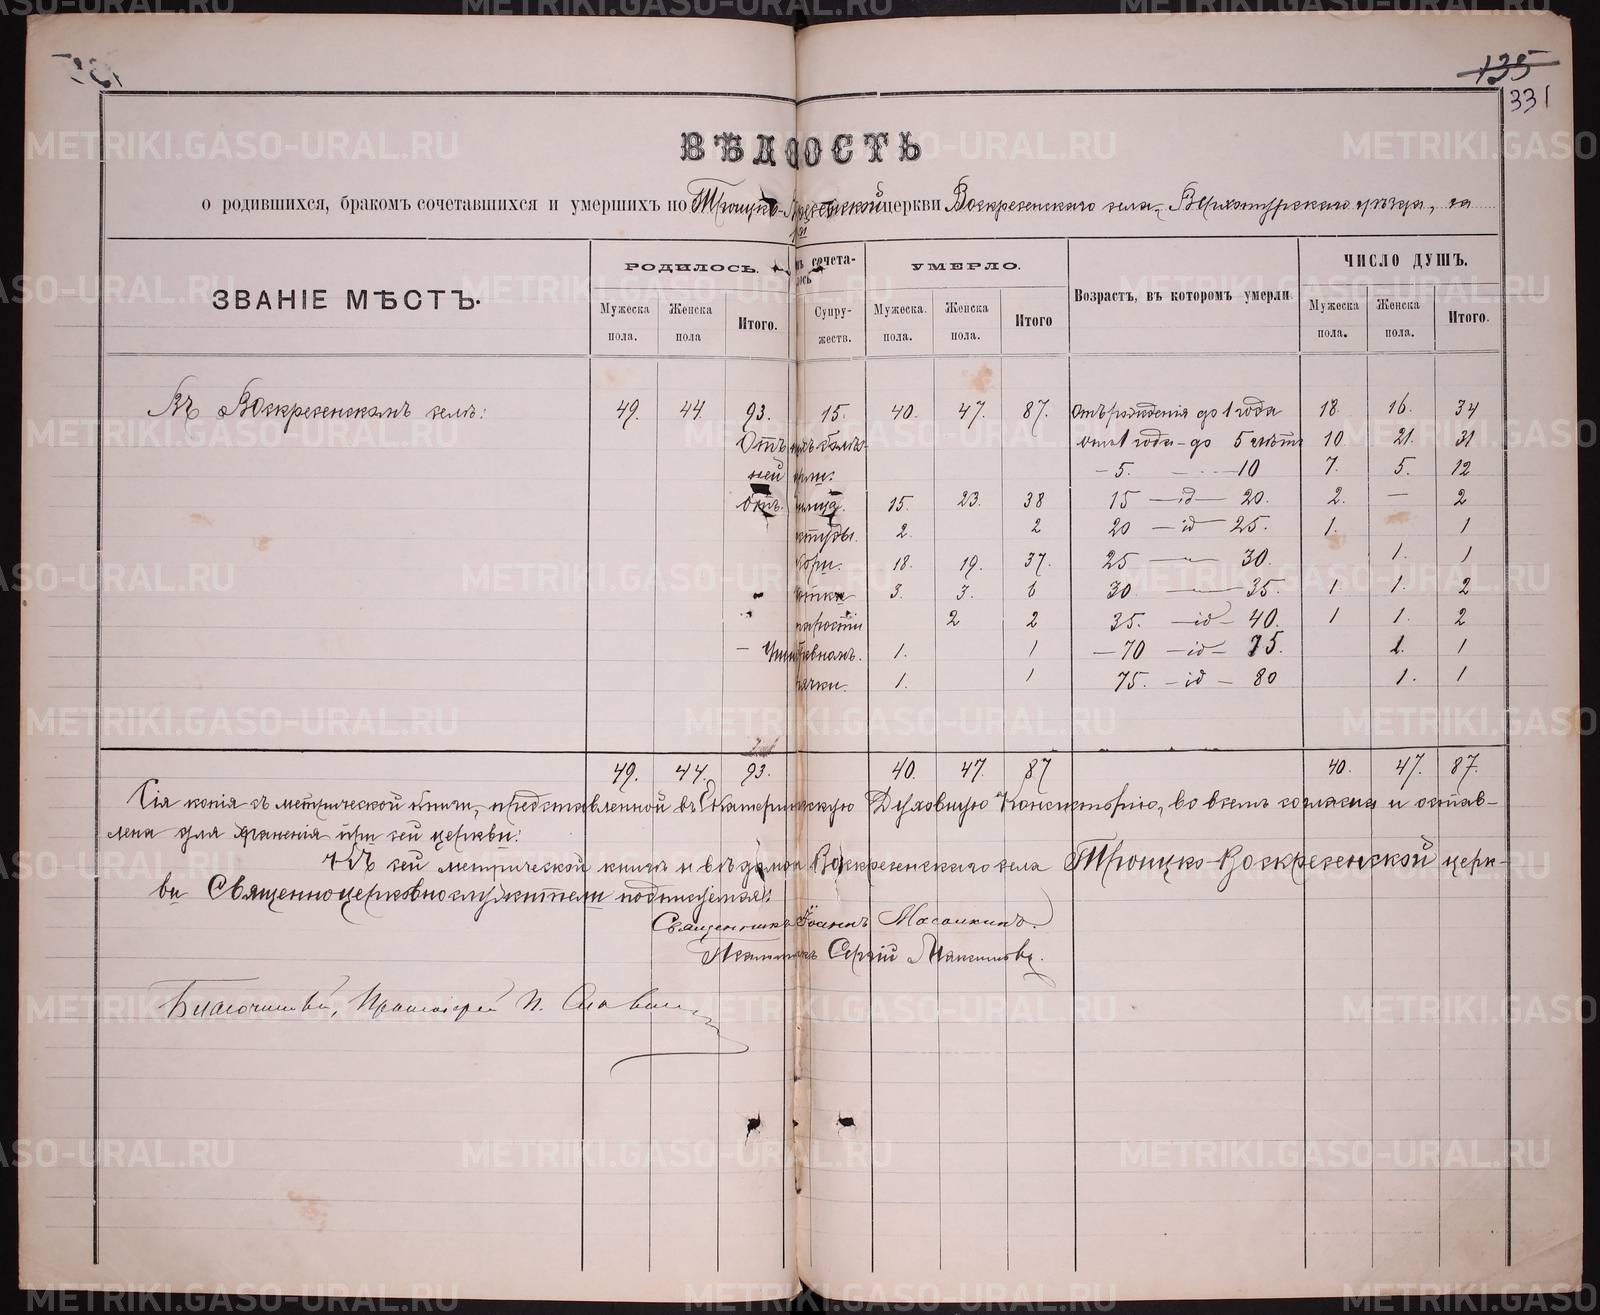 135
331
ВѢДОМОСТЬ
о родившихся, бракомъ сочетавшихся и умершихъ по Троицко-Воскресенской церкви Воскресенскаго села, Верхотурскаго уѣзда, за
ЗВАНІЕ МѢСТЪ. РОДИЛОСЬ. сочета- УМЕРЛО. Возрастъ, въ которомъ умерли. ЧИСЛО ДУШЪ.
Мужеска пола. Женска пола Итого. Супру-жествъ. Мужеска пола. Женска пола. Итого Мужеска пола. Женска пола. Итого.
Въ Воскресенскомъ селѣ: 49. 44. 93. 15. 40. 47. 87. Отъ рожденія до 1 года 18. 16. 34
отъ 1 года до 5 лѣтъ 10. 21. 31
— 5. — 10 7. 5. 12
Отъ 15. 23. 38 15 — id — 20. 2. — 2
2. 2 20 — id — 25. 1. 1
кори. 18. 19. 37. 25 — 30. 1. 1
3. 3. 6 30 — 35. 1. 1. 2
старости 2 2 35. — id — 40. 1 1. 2
1. 1 — 70 — id — 75. 1. 1
1. 1 75. — id — 80 1. 1
49. 44. 93. 40. 47. 87 40. 47. 87.
Сія копія съ метрической книги, представленной въ Екатеринбургскую Духовную Консисторію, во всемъ согласна и остав-
лена для храненія при сей церкви.
Къ сей метрической книгѣ и вѣдомости Воскресенскаго села Троицко-Воскресенской церк-
ви Священноцерковнослужители подписуемся:
Священникъ Іоаннъ
Псаломщикъ Сергій Максимовъ.
Благочинный, Протоіерей П.
METRIKI.GASO-URAL.RU